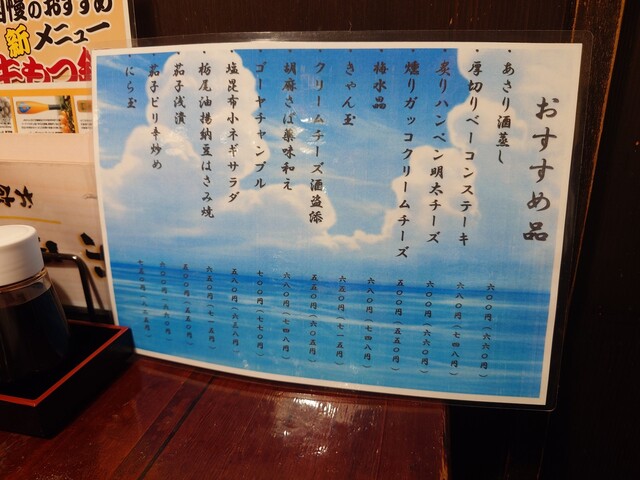 おすすめ品
・あさり酒蒸し 六〇〇円(六六〇円)
・厚切りベーコンステーキ 六八〇円(七四八円)
・炙りハンペン明太チーズ 六〇〇円(六六〇円)
・燻りガッコクリームチーズ 五〇〇円(五五〇円)
・梅水晶 六八〇円(七四八円)
・きゃん玉 六五〇円(七一五円)
・クリームチーズ酒盗添 五五〇円(六〇五円)
・胡麻さば薬味和え 六八〇円(七四八円)
・ゴーヤチャンプル 七〇〇円(七七〇円)
・塩昆布小ネギサラダ 五八〇円(六三八円)
・栃尾油揚納豆はさみ焼 六五〇円(七一五円)
・茄子浅漬 五〇〇円(五五〇円)
・茄子ピリ辛炒め 六〇〇円(六六〇円)
・にら玉 七五〇円(八二五円)
自慢のおすすめ
新メニュー